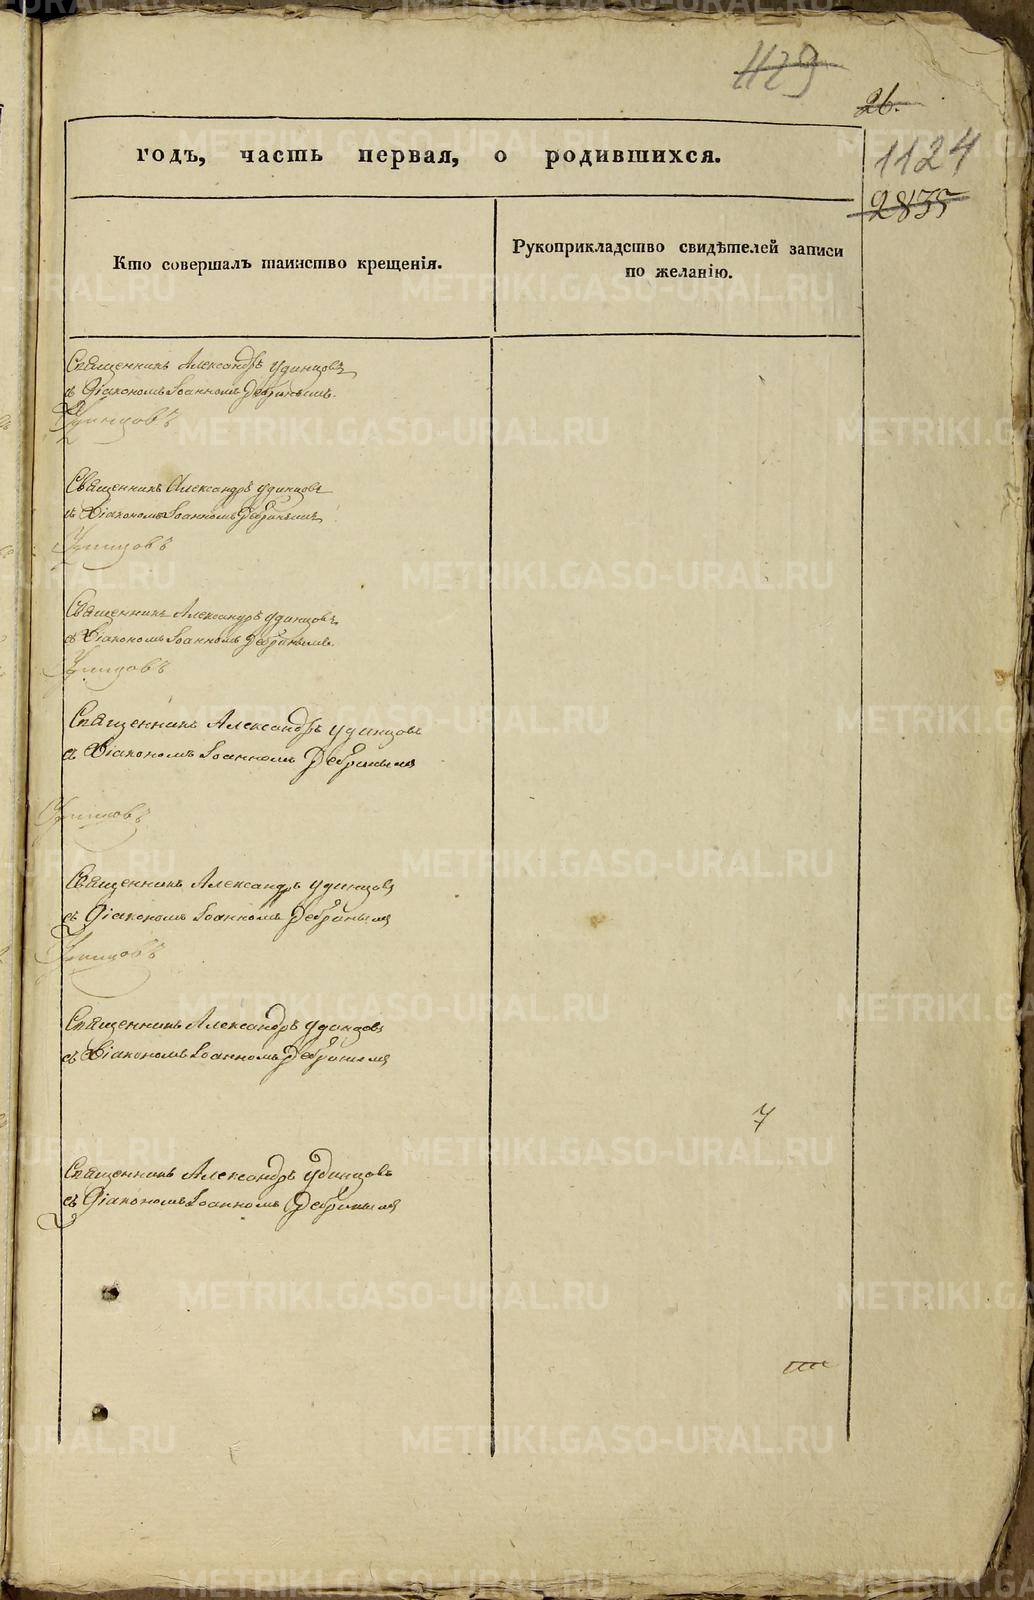 1123
26.
1124
2835
годъ, часть первая, о родившихся.
Кто совершалъ таинство крещенія.
Рукоприкладство свидѣтелей записи
по желанію.
Священникъ Александръ Удинцовъ
съ Діакономъ Іоанномъ Дебринымъ.
Удинцовъ
Священникъ Александръ Удинцовъ
съ Діакономъ Іоанномъ Дебринымъ
Удинцовъ
Священникъ Александръ Удинцовъ
съ Діакономъ Іоанномъ Дебринымъ.
Удинцовъ
Священникъ Александръ Удинцовъ
съ Діакономъ Іоанномъ Дебринымъ
Удинцовъ
Священникъ Александръ Удинцовъ
съ Діакономъ Іоанномъ Дебринымъ
Удинцовъ
Священникъ Александръ Удинцовъ
съ Діакономъ Іоанномъ Дебринымъ
7
Священникъ Александръ Удинцовъ
съ Діакономъ Іоанномъ Дебринымъ
METRIKI.GASO-URAL.RU